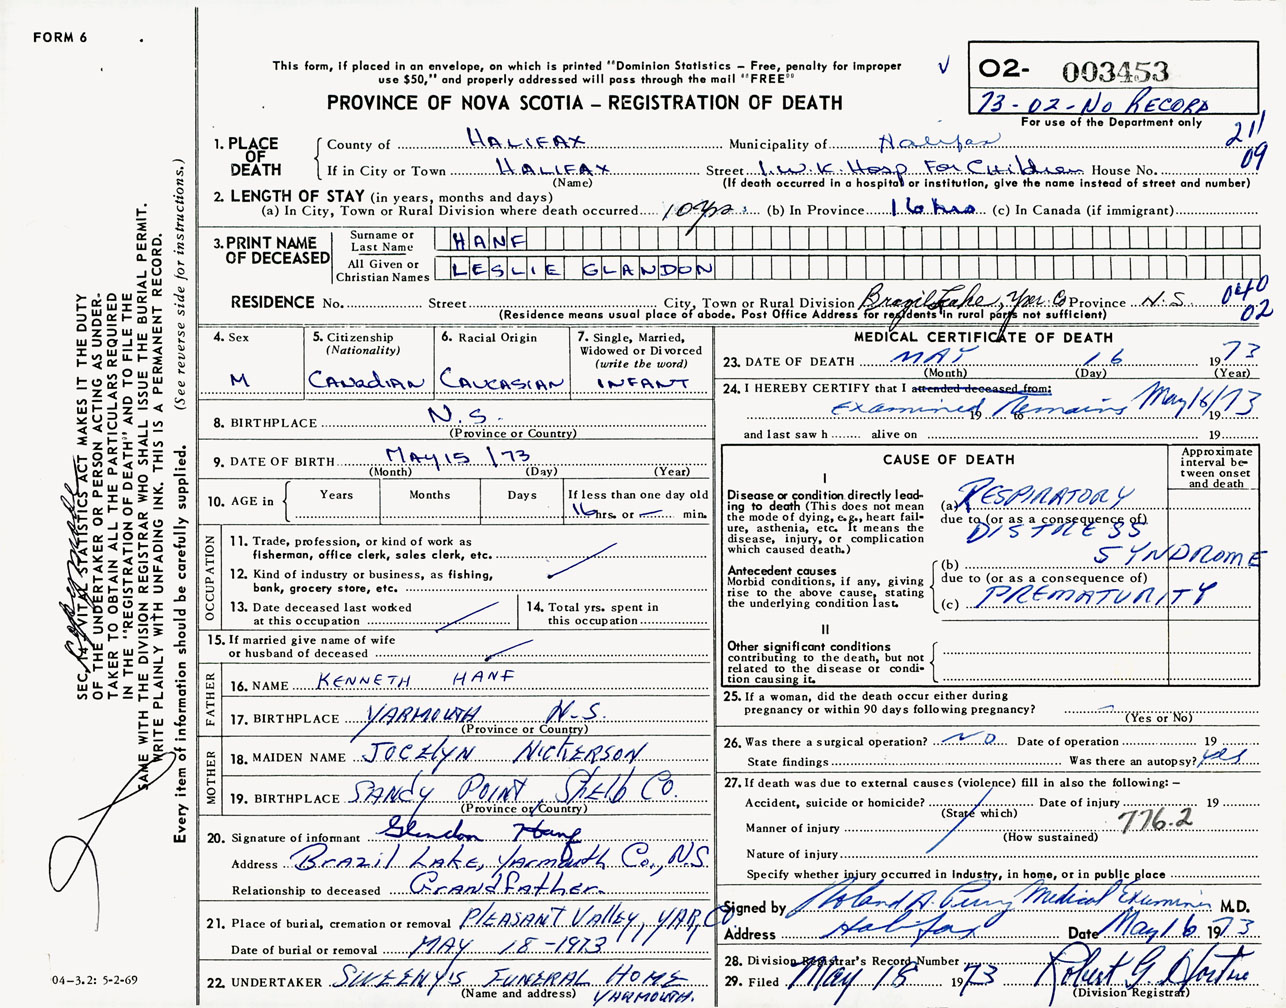 FORM 6
This form, if placed in an envelope, on which is printed "Dominion Statistics – Free, penalty for improper
use $50," and properly addressed will pass through the mail "FREE"
PROVINCE OF NOVA SCOTIA – REGISTRATION OF DEATH
O2- 003453
73-02-No RECORD
For use of the Department only
211
09
1. PLACE OF DEATH
County of HALIFAX Municipality of Halifax
If in City or Town HALIFAX Street I.W.K. Hosp For Children House No.
(Name) (If death occurred in a hospital or institution, give the name instead of street and number)
2. LENGTH OF STAY (in years, months and days)
(a) In City, Town or Rural Division where death occurred (b) In Province 16 hrs (c) In Canada (if immigrant)
3. PRINT NAME OF DECEASED
Surname or Last Name HANF
All Given or Christian Names LESLIE GLANDON
040
02
RESIDENCE No. Street City, Town or Rural Division Brazil Lake, Yar. Co Province N.S.
(Residence means usual place of abode. Post Office Address for residents in rural parts not sufficient)
4. Sex
M
5. Citizenship
(Nationality)
Canadian
6. Racial Origin
CAUCASIAN
7. Single, Married,
Widowed or Divorced
(write the word)
INFANT
8. BIRTHPLACE N.S.
(Province or Country)
9. DATE OF BIRTH MAY 15 /73
(Month) (Day) (Year)
10. AGE in
Years Months Days If less than one day old
16 hrs. or – min.
OCCUPATION
11. Trade, profession, or kind of work as
fisherman, office clerk, sales clerk, etc.
12. Kind of industry or business, as fishing,
bank, grocery store, etc.
13. Date deceased last worked
at this occupation
14. Total yrs. spent in
this occupation
15. If married give name of wife
or husband of deceased
FATHER
16. NAME KENNETH HANF
17. BIRTHPLACE YARMOUTH N.S.
(Province or Country)
MOTHER
18. MAIDEN NAME JOCELYN NICKERSON
19. BIRTHPLACE SANDY POINT, Shelb Co.
(Province or Country)
20. Signature of informant Glendon Hanf
Address Brazil Lake, Yarmouth Co., N.S
Relationship to deceased Grandfather
21. Place of burial, cremation or removal PLEASANT VALLEY, YAR, CO
Date of burial or removal MAY 18-1973
22. UNDERTAKER SWEENY'S FUNERAL HOME
(Name and address) YARMOUTH.
MEDICAL CERTIFICATE OF DEATH
23. DATE OF DEATH MAY 16 1973
(Month) (Day) (Year)
24. I HEREBY CERTIFY that I attended deceased from:
Examined 19 Remains to May/16/ 19 73
and last saw h alive on 19
CAUSE OF DEATH
Approximate
interval be-
tween onset
and death
I
Disease or condition directly lead-
ing to death (This does not mean
the mode of dying, e.g., heart fail-
ure, asthenia, etc. It means the
disease, injury, or complication
which caused death.)
(a) RESPIRATORY
due to (or as a consequence of)
DISTRESS
(b) SYNDROME
Antecedent causes
Morbid conditions, if any, giving
rise to the above cause, stating
the underlying condition last.
due to (or as a consequence of)
(c) PREMATURITY
II
Other significant conditions
contributing to the death, but not
related to the disease or condi-
tion causing it.
25. If a woman, did the death occur either during
pregnancy or within 90 days following pregnancy? –
(Yes or No)
26. Was there a surgical operation? NO Date of operation 19
State findings Was there an autopsy? yes
27. If death was due to external causes (violence) fill in also the following: –
Accident, suicide or homicide? Date of injury 19
(State which)
776.2
Manner of injury
(How sustained)
Nature of injury
Specify whether injury occurred in Industry, in home, or in public place
Signed by Roland A. Perry Medical Examiner M.D.
Address Halifax Date May 16 1973
28. Division Registrar's Record Number
29. Filed May 18 1973 Robert G.
(Division Registrar)
SEC. 14 VITAL STATISTICS ACT MAKES IT THE DUTY
OF THE UNDERTAKER OR PERSON ACTING AS UNDER-
TAKER TO OBTAIN ALL THE PARTICULARS REQUIRED
IN THE "REGISTRATION OF DEATH" AND TO FILE THE
SAME WITH THE DIVISION REGISTRAR WHO SHALL ISSUE THE BURIAL PERMIT.
WRITE PLAINLY WITH UNFADING INK. THIS IS A PERMANENT RECORD.
Every item of information should be carefully supplied. (See reverse side for instructions.)
04-3.2: 5-2-69